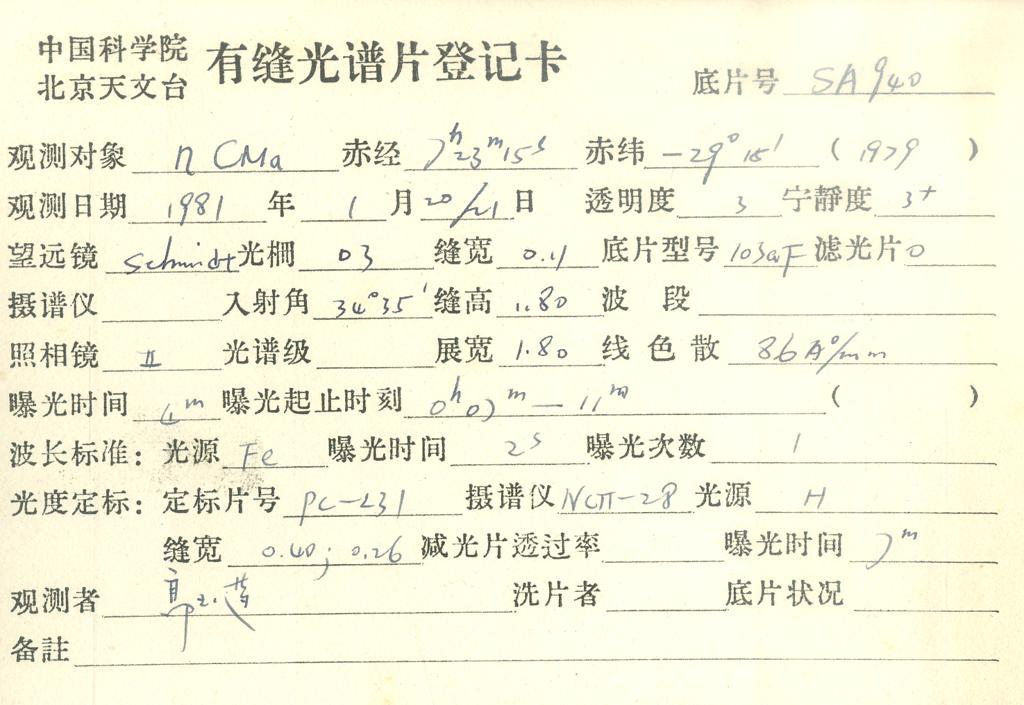 中国科学院
北京天文台
有缝光谱片登记卡
底片号 SA940
观测对象 η CMa 赤经 7ʰ23ᵐ15ˢ 赤纬 -29°15′ (1979)
观测日期 1981 年 1 月 20/21 日 透明度 3 宁静度 3⁺
望远镜 Schmidt 光栅 03 缝宽 底片型号 103aF 滤光片 0
摄谱仪 入射角 34°35′ 缝高 1.80 波段
照相镜 II 光谱级 展宽 1.80 线色散 Å/mm
曝光时间 4ᵐ 曝光起止时刻 0ʰ07ᵐ—11ᵐ ( )
波长标准: 光源 Fe 曝光时间 2ˢ 曝光次数 1
光度定标: 定标片号 PC-231 摄谱仪 ИСП-28 光源 H
缝宽 0.40; 0.26 减光片透过率 曝光时间 7ᵐ
观测者 洗片者 底片状况
备註